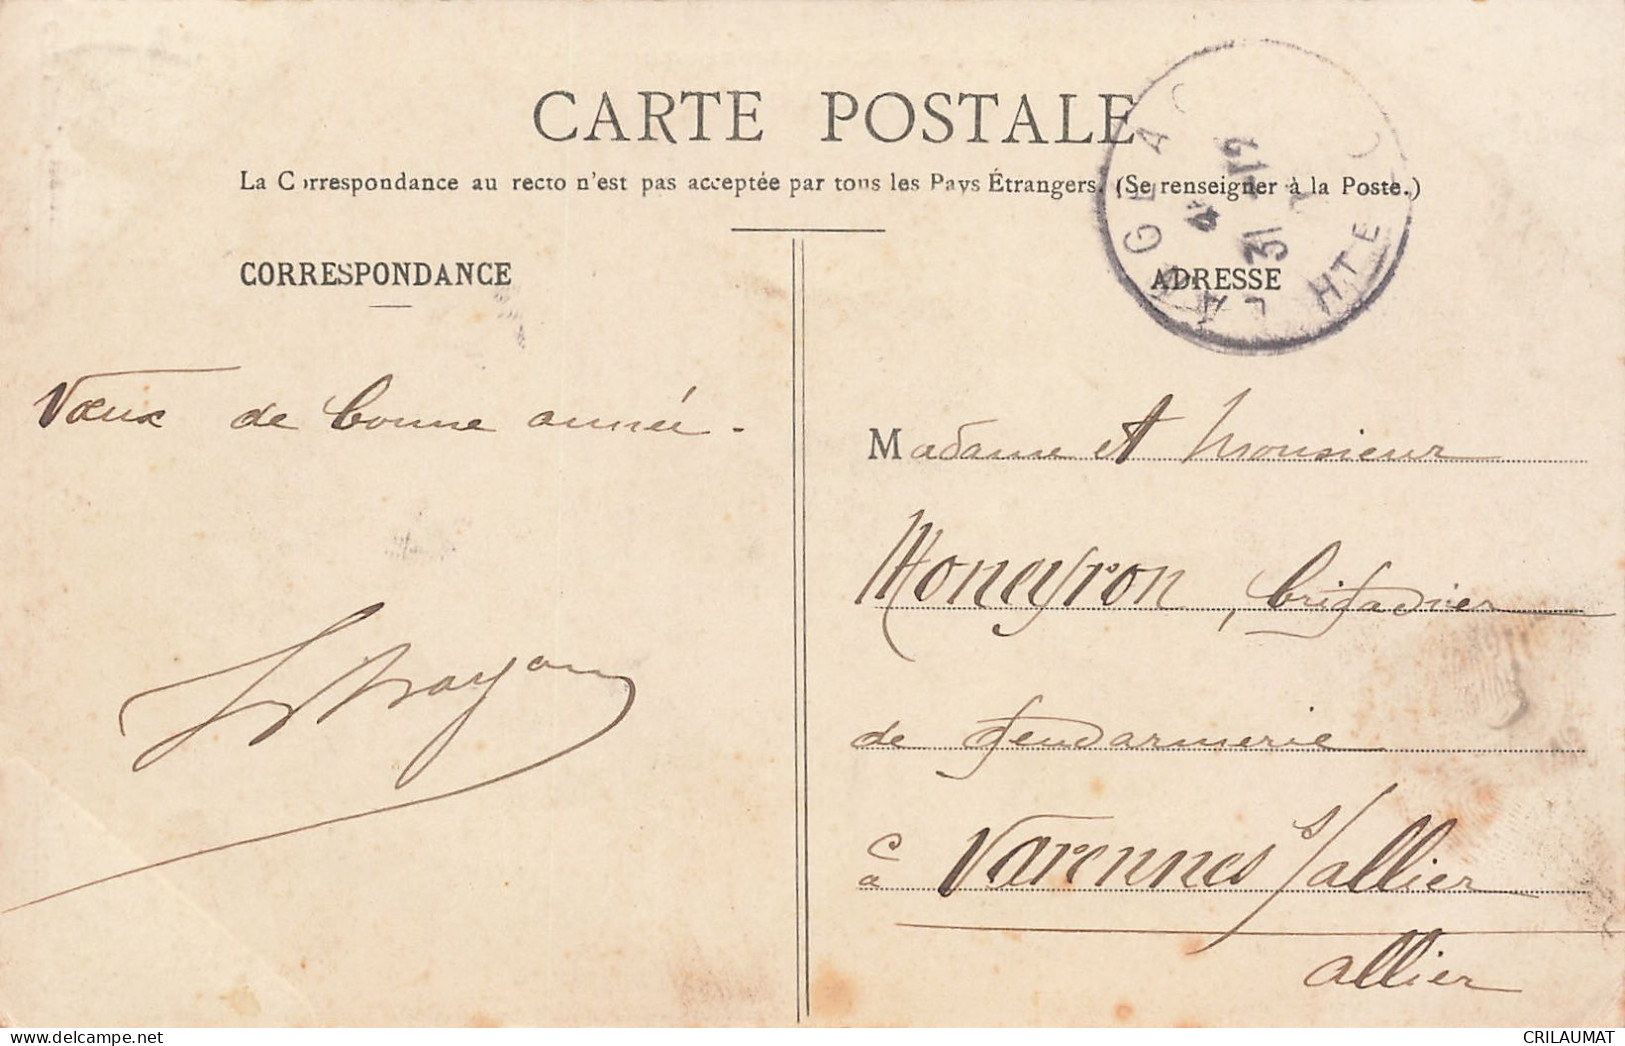 CARTE POSTALE
La Correspondance au recto n'est pas acceptée par tous les Pays Étrangers. (Se renseigner à la Poste.)
CORRESPONDANCE
ADRESSE
LANGEAC
HTE
31
Vœux de bonne année.
Madame et Monsieur
Moneyron, brigadier
de gendarmerie
à Varennes s/allier
allier
CRILAUMAT